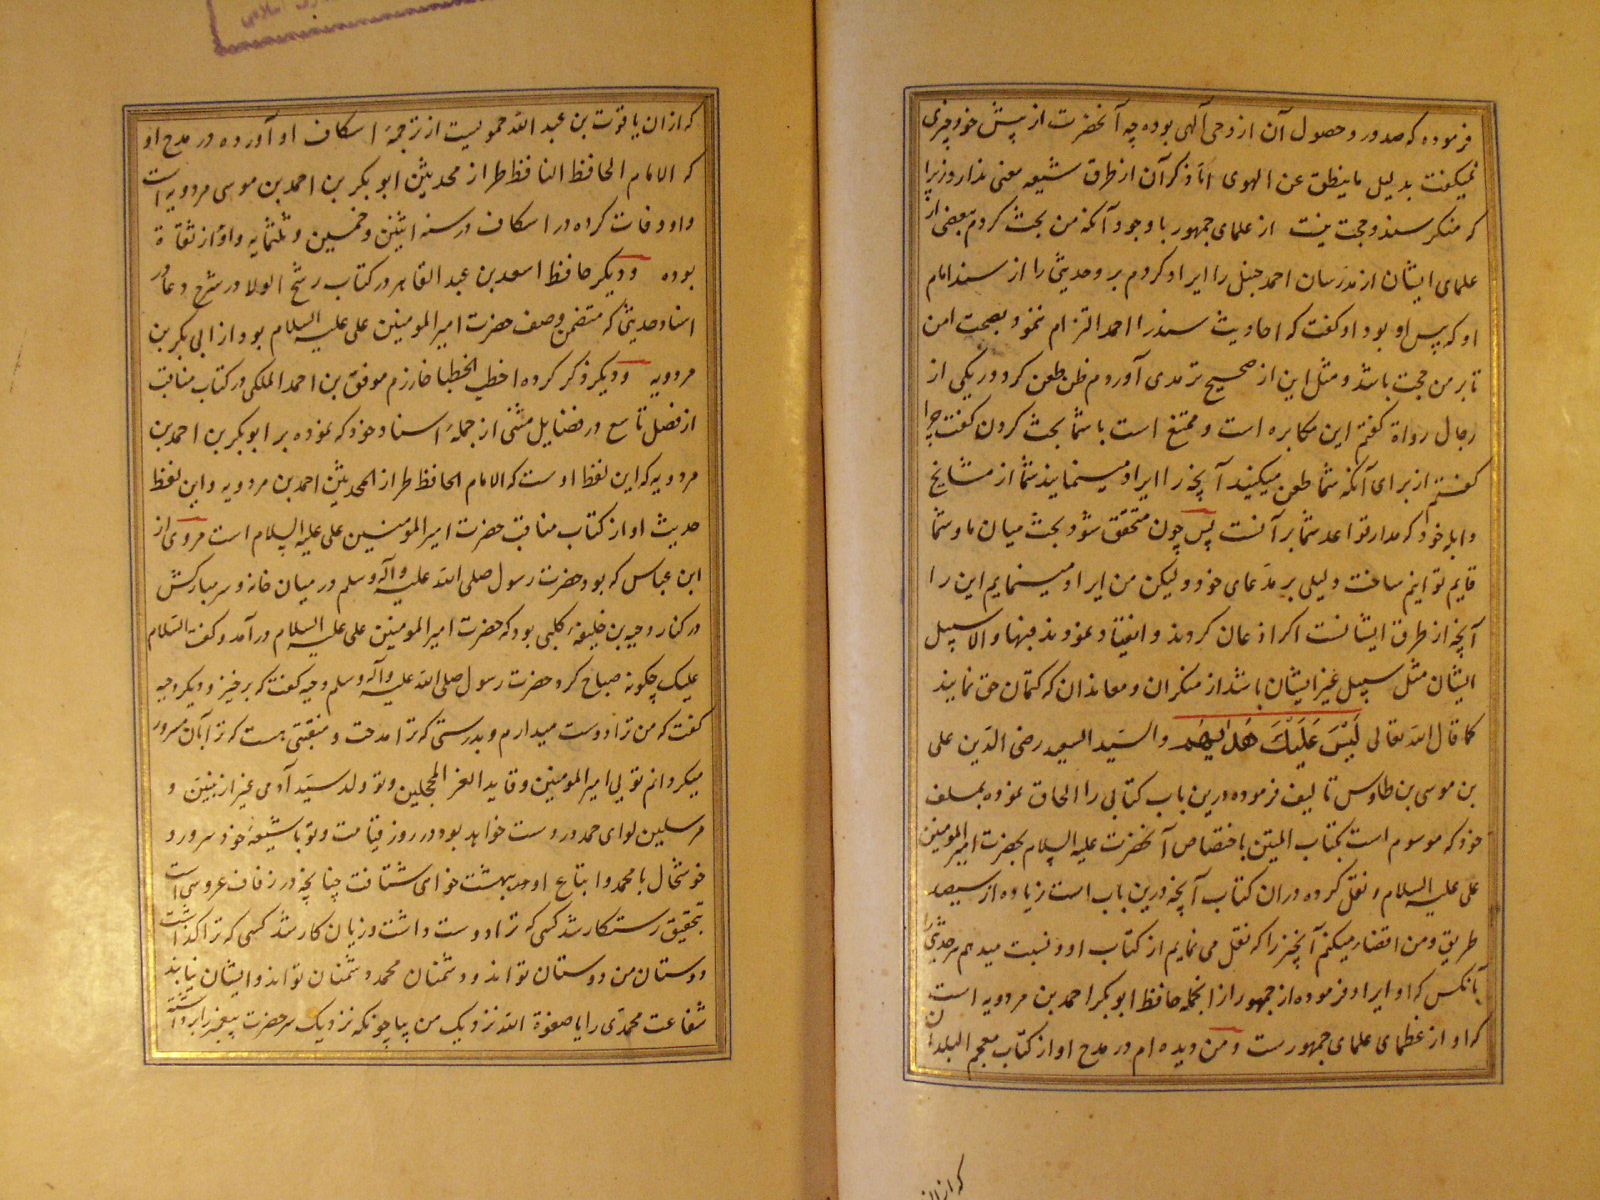 فرموده که صدور و حصول آن از وحی آلهی بوده چه آنحضرت از پیش خود چیزی
نمیکفت بدلیل ما ینطق عن الهوی اما ذکر آن از طرق شیعه معنی ندارد زیرا
که منکر سند و حجت نیست از علمای جمهور با وجود آنکه من بحث کردم ببعضی از
علمای ایشان از مدرسان احمد حنبل را ایراد کردم بر و حدیثی را از سند امام
او که پس او بود او کفت که احادیث سند را احمد التزام نمود بصحت امن
تا بر من حجت باشد و مثل این از صحیح ترمدی آوردم طعن کرد در یکی از
رجال رواة کفتم این مکابره است و ممتنع است با شما بحث کردن کفت چرا
کفتم از برای آنکه شما طعن میکنید آنچه را ایراد مینمایند شما از مشایخ
خود که مدار قواعد شما بر آنست پس چون متحقق شود بحث میان ما و شما
قایم توانیم ساخت دلیلی بر مدعای خود ولیکن من ایراد مینمایم این را
آنچه از طرق ایشانست اکر اذعان کردند و انقیاد نمودند فبها و الا سبیل
ایشان مثل سبیل غیر ایشان باشد از منکران و معاندان که کتمان حق نمایند
کما قال الله تعالی لیس علیک هدایهم والسید السعید رضی الدین علی
بن موسی بن طاوس تالیف فرموده درین باب کتابی را الحاق نموده بسلف
خود که موسوم است بکتاب المتین باختصاص آنحضرت علیه السلام بحضرت امیر المومنین
علی علیه السلام و نقل کرده در ان کتاب آنچه درین باب است زیاده از سیصد
طریق و من اقتصار میکنم آنچیز را که نقل می نمایم از کتاب او و نسبت میدهم هر حدیثی را
بآنکس که او ایراد فرموده از جمهور از انجمله حافظ ابوبکر احمد بن مردویه است
که او از عظمای علمای جمهورست و من دیده ام در مدح او از کتاب معجم البلدان
که از ان
که از ان یاقوت بن عبد الله حمویست از ترجمۀ اسکاف او آورده در مدح او
که الامام الحافظ الناقظ طراز محدیثن ابوبکر بن احمد بن موسی مردویه است
و او وفات کرده در اسکاف در سنه اثنین و خمسین و ثلثمایه و او از ثقاة
بوده و دیکر حافظ اسعد بن عبد القاهر در کتاب رشح الولا در شرح دعا در
اسناد حدیثی که متضمن وصف حضرت امیر المومنین علی علیه السلام بود از ابی بکر بن
مردویه و دیکر ذکر کرده اخطب الخطبا خارزم موفق بن احمد الملکی در کتاب مناقب
از فضل تاسع در فضایل مثنی از جملۀ اسناد خود که نموده بر ابوبکر بن احمد بن
مردویه که این لفظ اوست که الامام الحافظ طراز المحدیثن احمد بن مردویه و این لفظ
حدیث او از کتاب مناقب حضرت امیر المومنین علی علیه السلام است مروی از
ابن عباس که بود حضرت رسول صلی الله علیه وآله وسلم در میان خانه و سر مبارکش
در کنار دحیه بن خلیفۀ کلبی بود که حضرت امیر المومنین علی علیه السلام درآمد و کفت السلام
علیک چکونه صباح کرد حضرت رسول صلی الله علیه وآله وسلم دحیه کفت که بر خیز و دیکر دحیه
کفت که من ترا دوست میدارم و بدرستی که ترا مدحت و منقبتی هست که ترا بآن مسرور
میکردانم تویی امیر المومنین و قاید الغر المحجلین و تو ولد سید آدمی غیر از نبیین و
مرسلین لوای حمد در دست خواهد بود در روز قیامت و تو با شیعۀ خود مسرور و
خوشحال با محمد و اتباع او در بهشت خواهی شتافت چنانچه در زفاف عروسی است
بتحقیق رستکار شد کسی که ترا دوست داشت و زیان کار شد کسی که ترا کذاشت
دوستان من دوستان تواند و دشمنان محمد دشمنان تواند و ایشان نیابند
شفاعت محمدی را یا صفوة الله نزدیک من بیا چونکه نزدیک سر حضرت پیغمبر را برداشته